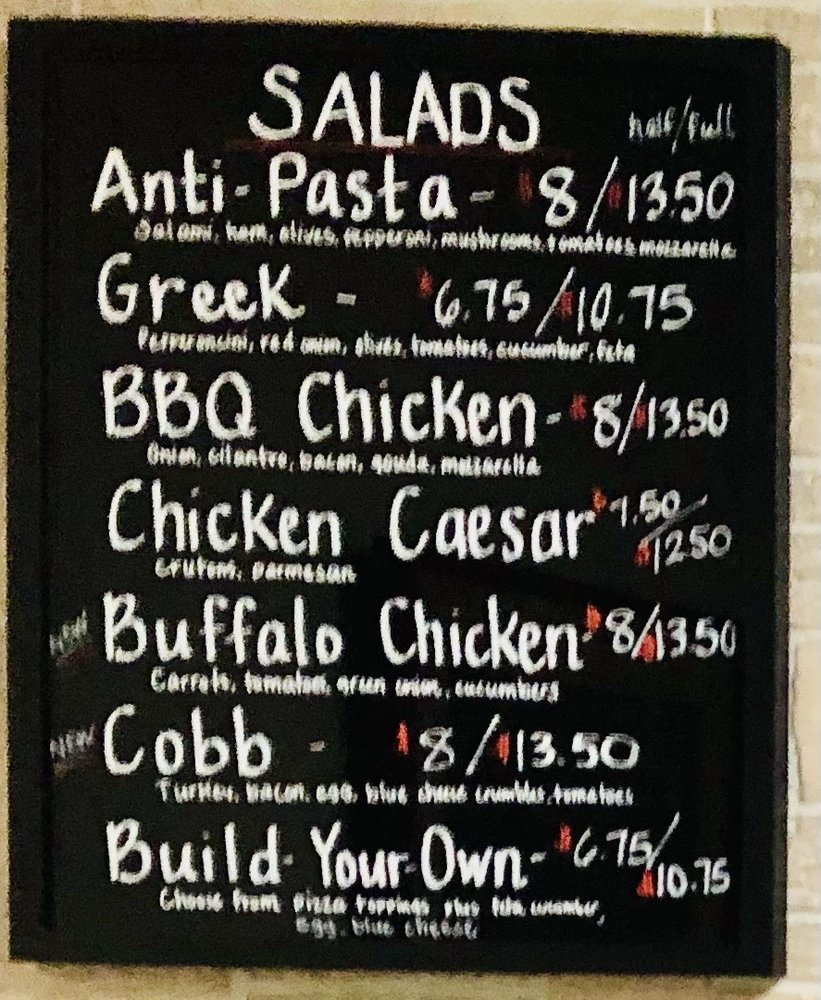 SALADS
half/full
Anti-Pasta - $8/$13.50
Salami, ham, olives, pepperoni, mushrooms, tomatoes, mozzarella
Greek - $6.75/$10.75
Pepperoncini, red onion, olives, tomatoes, cucumber, feta
BBQ Chicken - $8/$13.50
Onion, cilantro, bacon, gouda, mozzarella
Chicken Caesar $7.50/
$12.50
crutons, parmesan
NEW Buffalo Chicken - $8/$13.50
Carrots, tomatoes, green onion, cucumbers
NEW Cobb - $8/$13.50
Turkey, bacon, egg, blue cheese crumbles, tomatoes
Build-Your-Own - $6.75/
$10.75
Choose from pizza toppings plus feta, cucumber,
egg, blue cheese